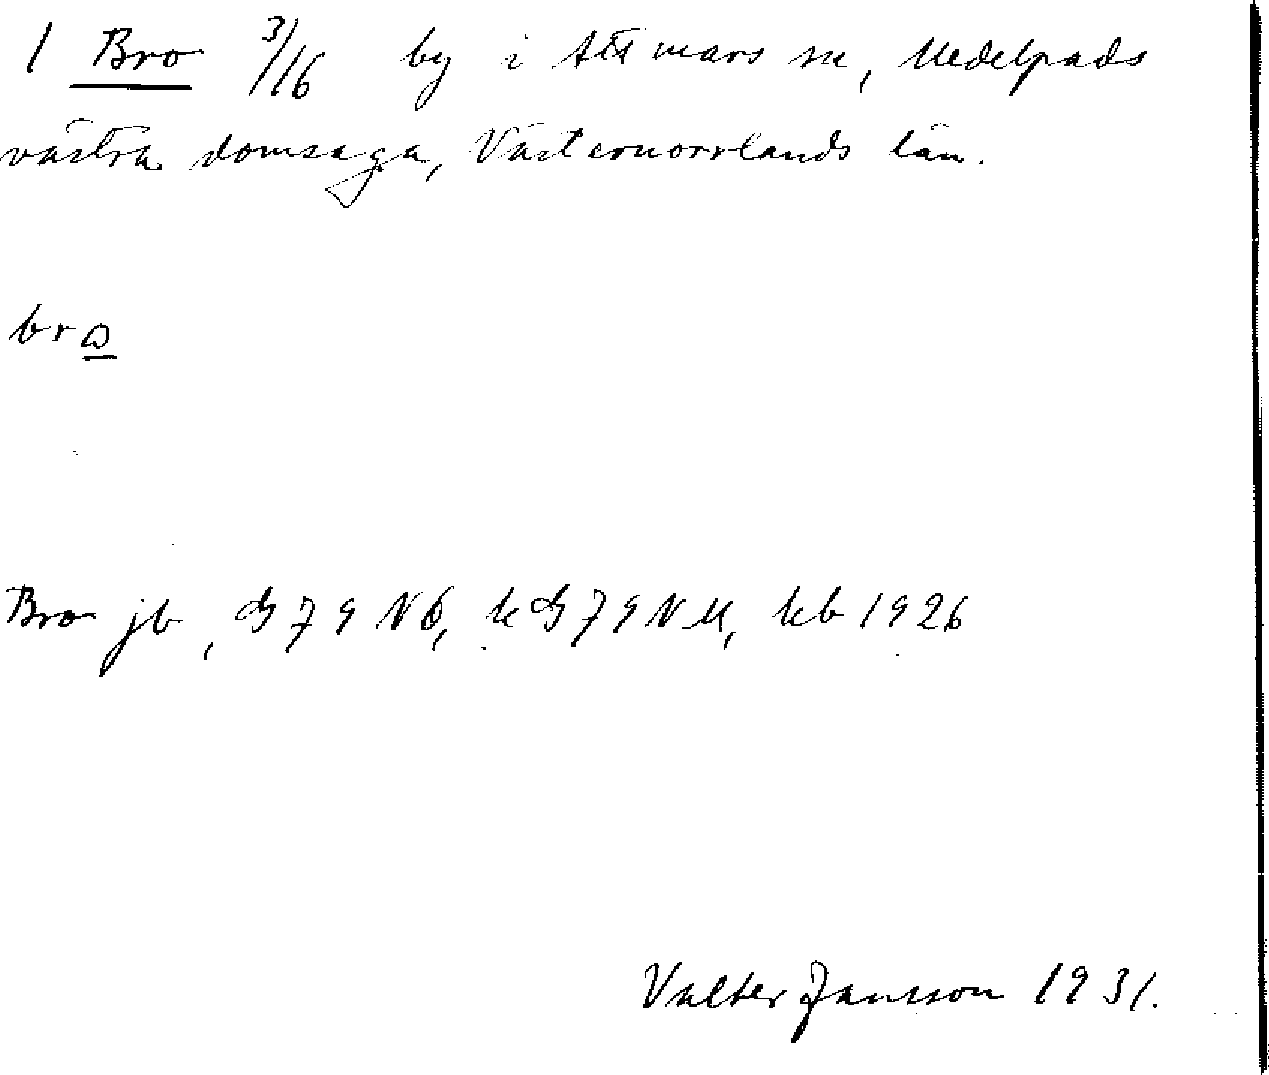 1 Bro 3/16 by i Attmars sn, Medelpads
västra domsaga, Västernorrlands län.
bro
Bro jb, GJ 79 NÖ, kGJ 79 NU, kb 1926
Valter Jansson 1931.